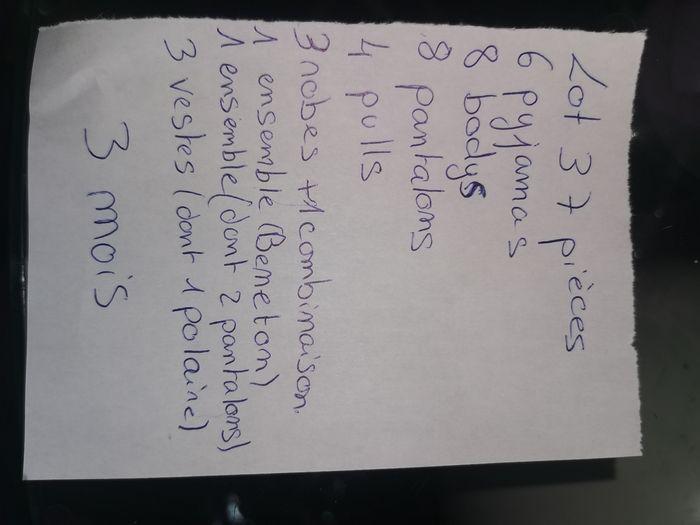 Lot 37 pièces
6 pyjamas
8 bodys
8 pantalons
4 pulls
3 robes +1 combinaison.
1 ensemble (Beneton)
1 ensemble (dont 2 pantalons)
3 vestes (dont 1 polaire)
3 mois